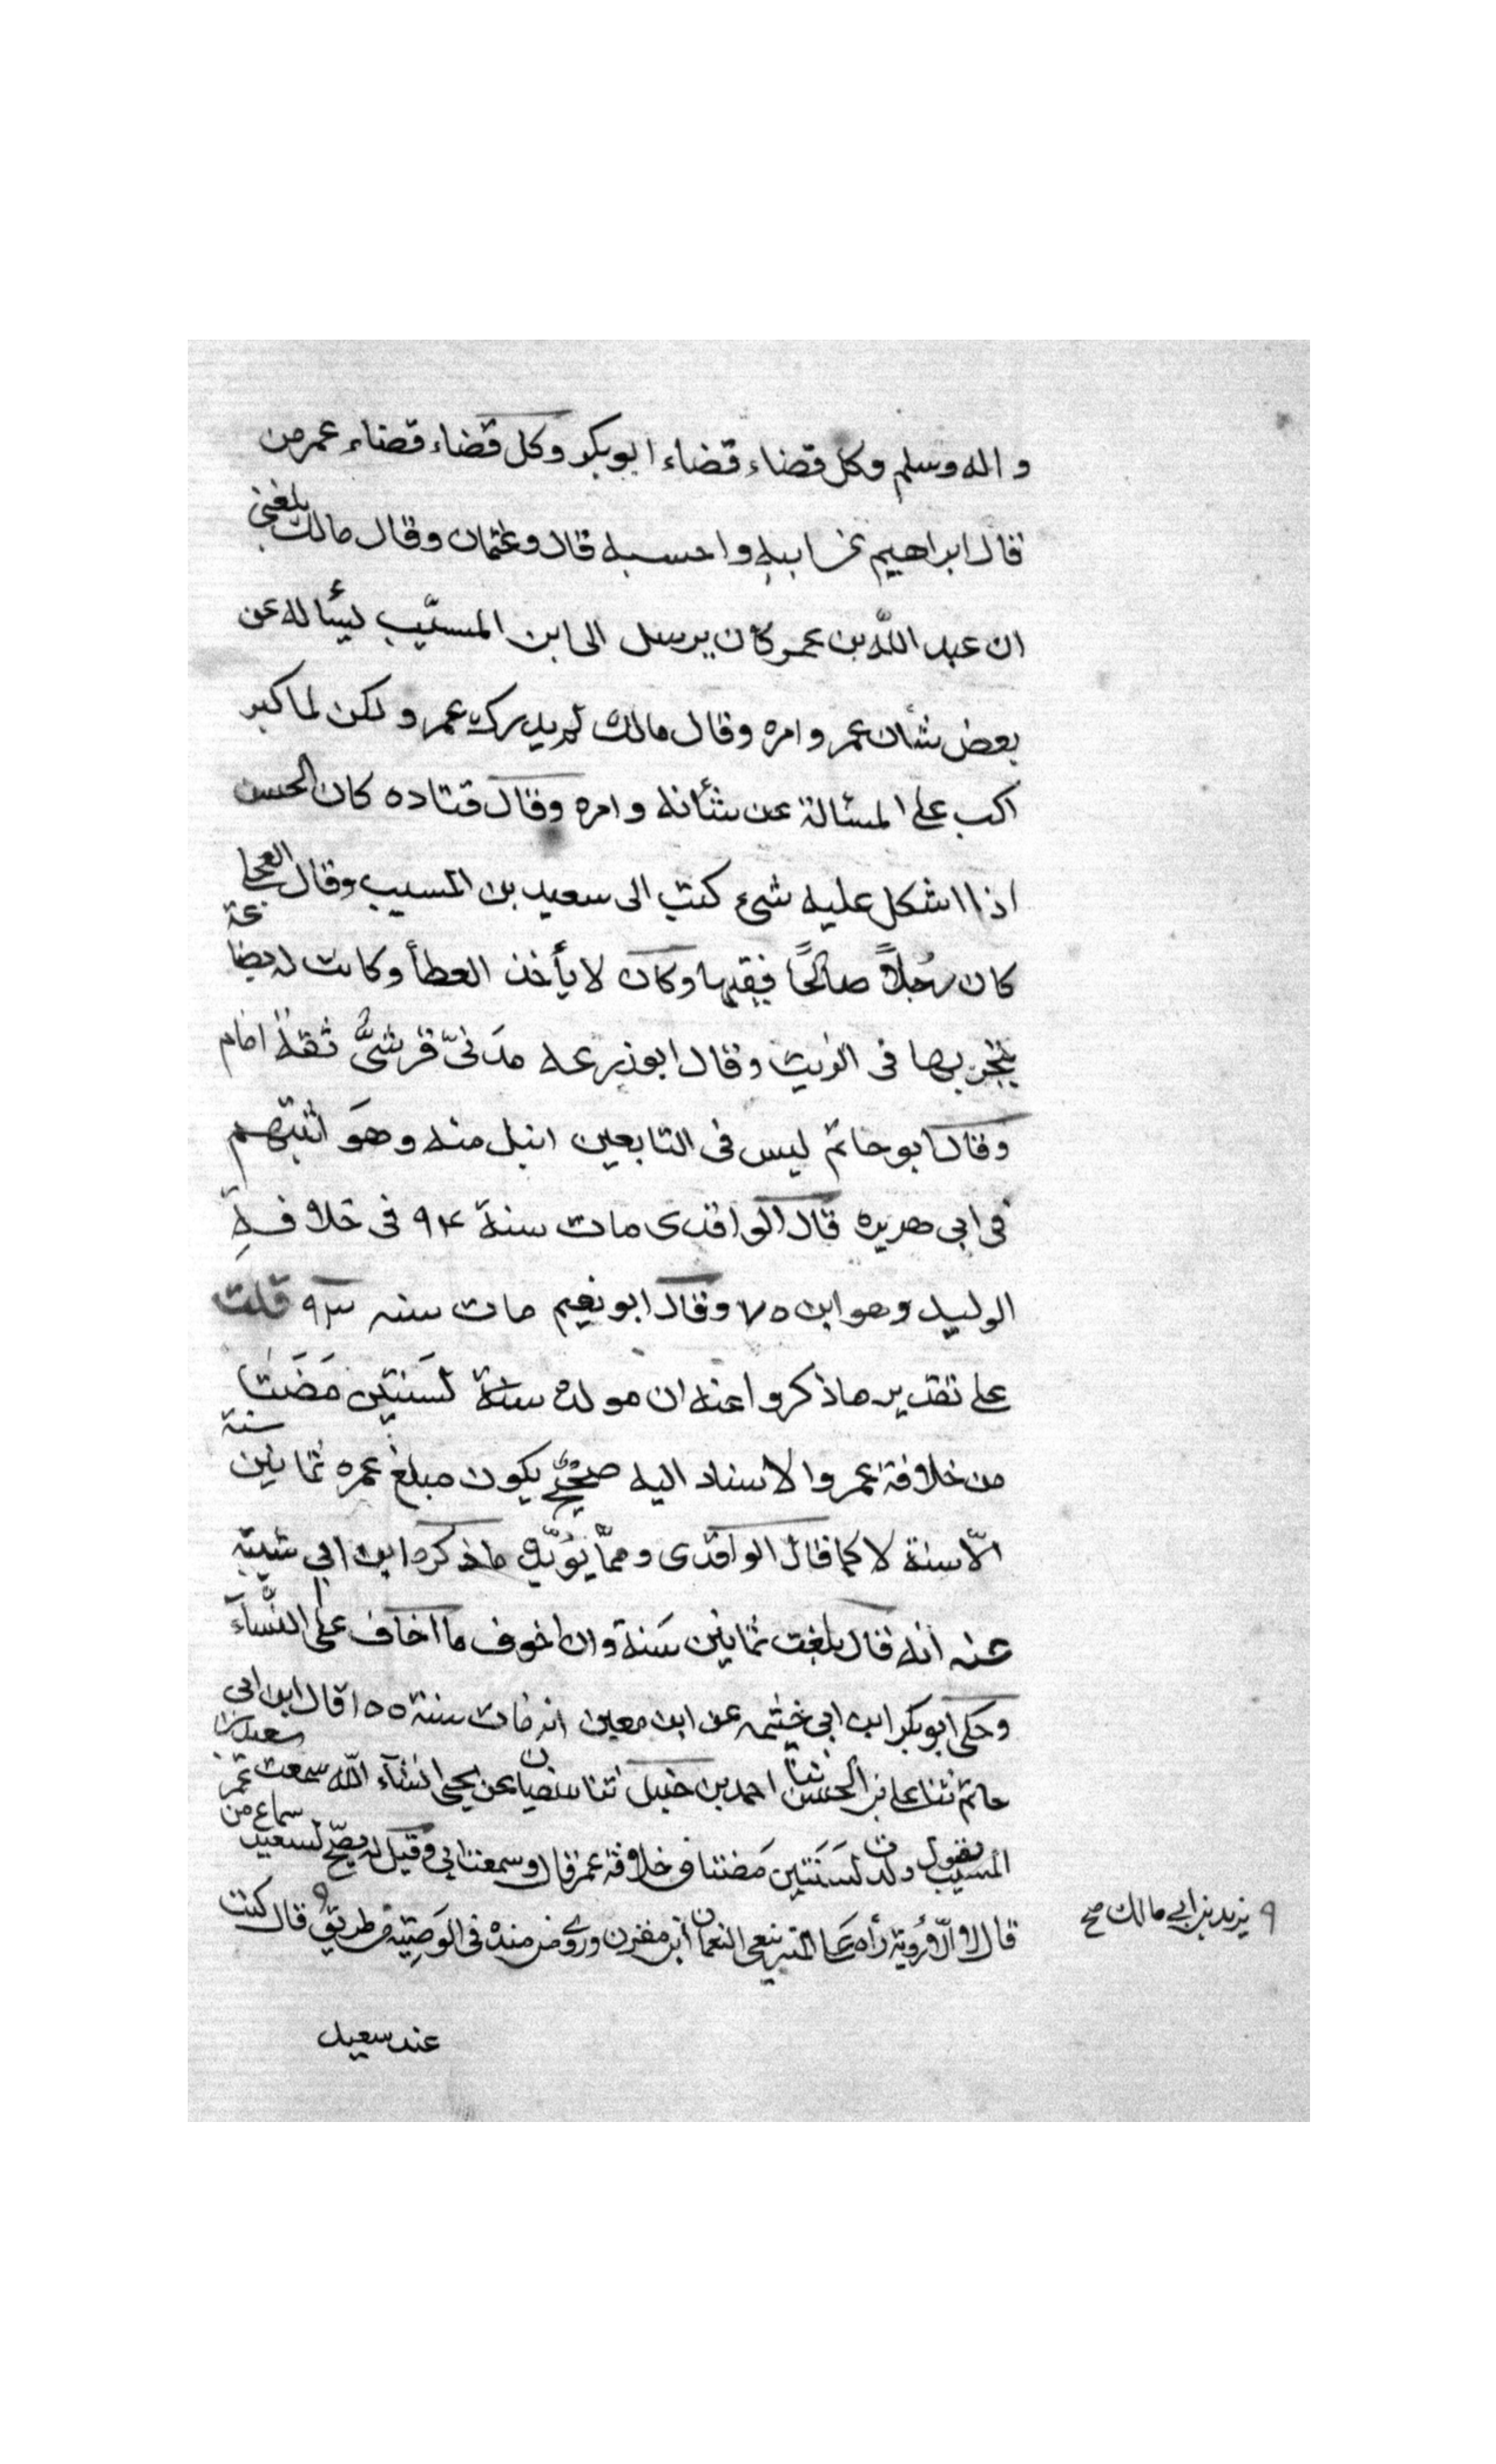 واله وسلم وكل قضاء قضاء ابوبكر وكل قضاء قضاء عمر من
قال ابراهيم عن ابيه واحسبه قال وعثمان وقال مالك بلغنى
ان عبد الله بن عمر كان يرسل الى ابن المسيّب ليسأله عن
بعض شأن عمر وامره وقال مالك لم يدرك عمر ولكن لما كبر
اكب على المسألة عن شأنه وامره وقال قتاده كان الحسن
اذا اشكل عليه شىء كتب الى سعيد بن المسيب وقال العجلى
كان رجلاً صالحًا فقيها وكان لا يأخذ العطأ وكانت له بضاعة
يتجر بها فى الزيت وقال ابو زرعه مدنىّ قرشىٌّ ثقة امام
وقال ابو حاتم ليس فى التابعين انبل منه وهوَ اثبتهم
فى ابى هريره قال الواقدى مات سنة ٩٤ فى خلافةِ
الوليد وهو ابن ٧٥ وقال ابو نعيم مات سنه ٩٣ قلت
على تقدير ما ذكروا عنه ان مولده سنة لسَنتين مَضَتا
من خلافة عمر والاسناد اليه صحيحٌ يكون مبلغ عمره ثمانين سنة
الّا سنة لا كما قال الواقدى وممّا يؤيّده ما ذكره ابن ابي شيبة
عنه انه قال بلغت ثمانين سَنة وان اخوف ما اخاف على النّسآء
وحكى ابو بكر ابن ابي خيثمه عن ابن معين انه مات سنة ١٠٥ قال ابن ابى
حاتم ثنا على بن الحسن ثنا احمد بن حنبل ثنا سفيان عن يحيى انشآء الله سمعت سعيد بن
المسيب يقول ولدت لسَنَتين مَضتا فى خلافة عمر قال وسمعت ابي وقيل له يصحّ لسعيد سماع من عمر
قال لا الّا رُوية رأه على المنبر ينعى النعمان ابن مقرن وروى ابن منده فى الوَصيّة من طريق قال كنت
٩ يزيد بن ابي مالك صح
عند سعيد